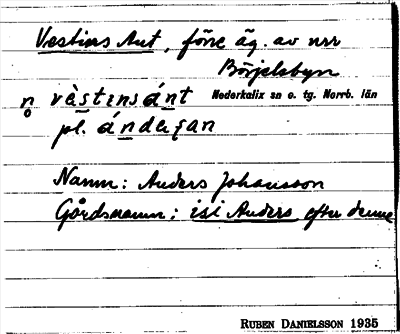 Vestins Ant, förre äg. av nr
Börjelsbyn
n̥ vàstɩnsánt Nederkalix sn o. tg. Norrb. län
pl. ándeʂan
Namn: Anders Johansson
Gårdsnamn: isi Anders efter denne
RUBEN DANIELSSON 1935